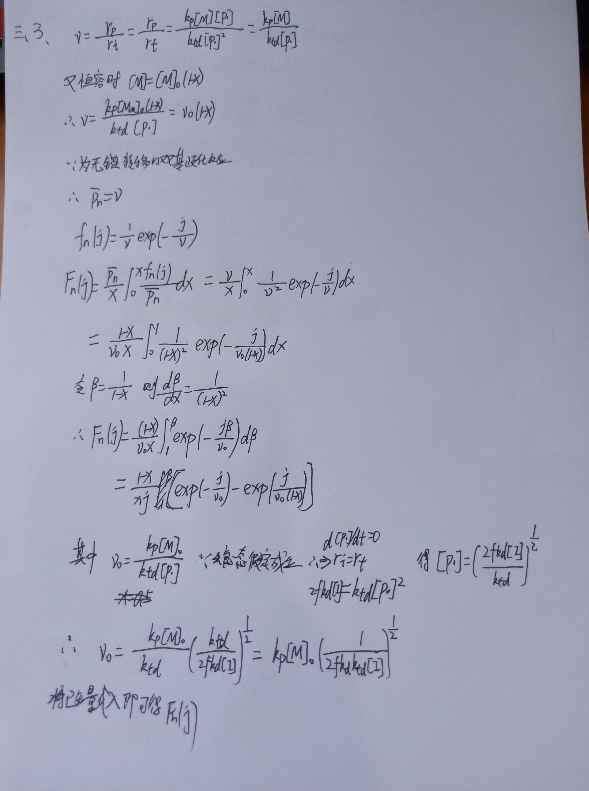 三、3、 ν = rp/rt = rp/rt = kp[M][P·]/ktd[P·]² = kp[M]/ktd[P·]
又恒容时 [M]=[M]₀(1-X)
∴ ν = kp[M]₀(1-X)/ktd[P·] = ν₀(1-X)
∵为无链转移
∴ P̄n=ν
fn(j)= 1/ν exp(-j/ν)
Fn(j)= P̄n/X ∫₀ˣ fn(j)/P̄n dx = ν/X ∫₀ˣ 1/ν² exp(-j/ν)dx
= (1-X)/(ν₀X) ∫₀ˣ 1/(1-X)² exp(-j/(ν₀(1-X)))dx
令 β= 1/(1-X) 则 dβ/dX = 1/(1-X)²
∴ Fn(j)= (1-X)/(ν₀X) ∫₁^β exp(-jβ/ν₀)dβ
= (1-X)/(Xj) [exp(-j/ν₀) - exp(j/(ν₀(1-X)))]
其中 ν₀ = kp[M]₀/ktd[P·] ∵稳态假定成立 ∴ d[P·]/dt=0 ⇒ ri=rt
2fkd[I]=ktd[P·]² 得 [P·]=(2fkd[I]/ktd)^(1/2)
∴ ν₀ = kp[M]₀/ktd (ktd/2fkd[I])^(1/2) = kp[M]₀ (1/2fkdktd[I])^(1/2)
将已知量代入即可得 Fn(j)